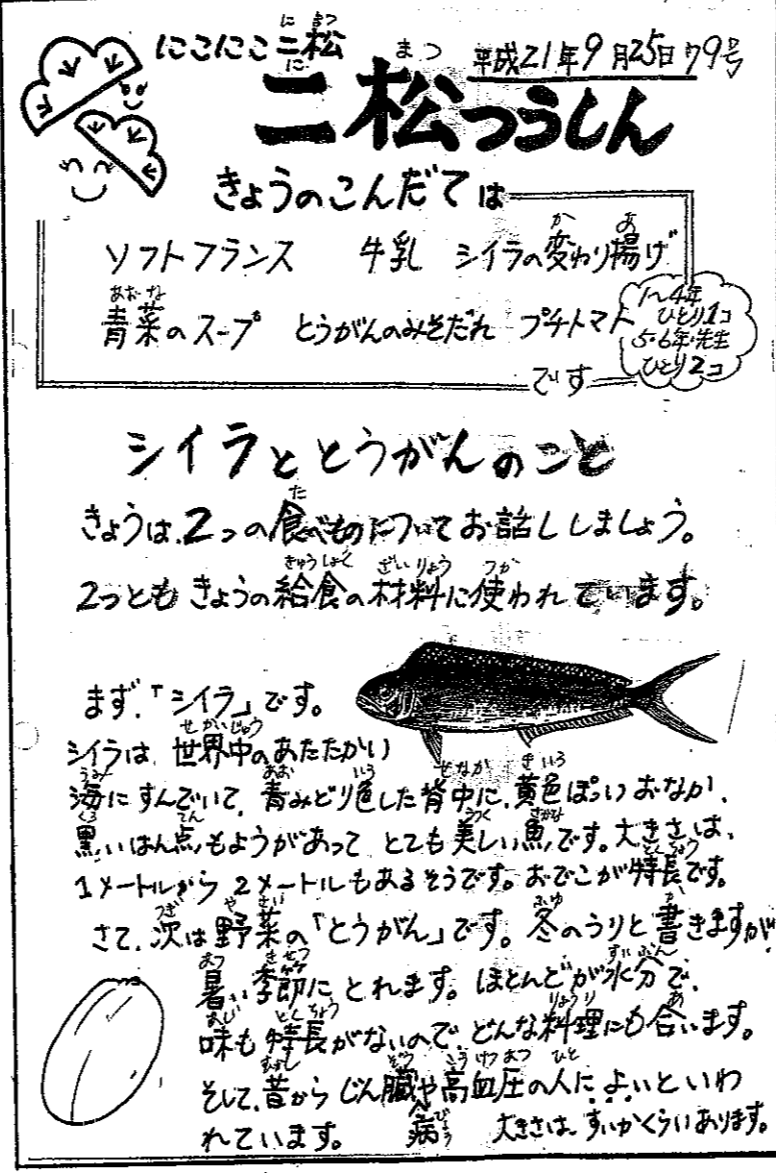 にこにこ二松
平成21年9月25日79号
二松つうしん
きょうのこんだては
ソフトフランス 牛乳 シイラの変わり揚げ
青菜のスープ とうがんのみそだれ プチトマト
1〜4年
ひとり1コ
5・6年・先生
ひとり2コ
です
シイラととうがんのこと
きょうは、2つの食べものについてお話ししましょう。
2つともきょうの給食の材料に使われています。
まず、「シイラ」です。
シイラは、世界中のあたたかい
海にすんでいて、青みどり色した背中に、黄色ぽいおなか、
黒いはん点もようがあってとても美しい魚です。大きさは、
1メートルから2メートルもあるそうです。おでこが特長です。
さて、次は野菜の「とうがん」です。冬のうりと書きますが
暑い季節にとれます。ほとんどが水分で、
味も特長がないので、どんな料理にも合います。
そして、昔からじん臓や高血圧の人によいといわ
れています。 病 大きさは、すいかくらいあります。